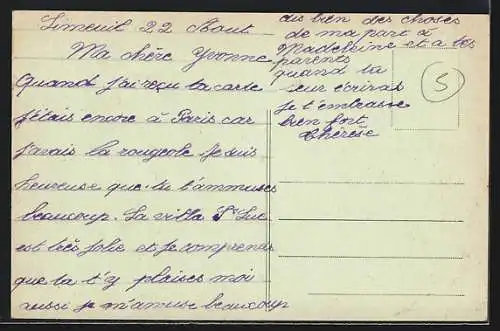 Limeuil 22 Aout
Ma chère Yvonne
Quand j'ai reçu ta carte
j'étais encore à Paris car
j'avais la rougeole. je suis
heureuse que tu t'amuses
beaucoup. La villa St Luc
est très jolie et je comprends
que tu t'y plaises moi
aussi je m'amuse beaucoup
dis bien des choses
de ma part à
Madeleine et a tes
parents
quand tu
leur écriras
je t'embrasse
bien fort
Thérèse
5